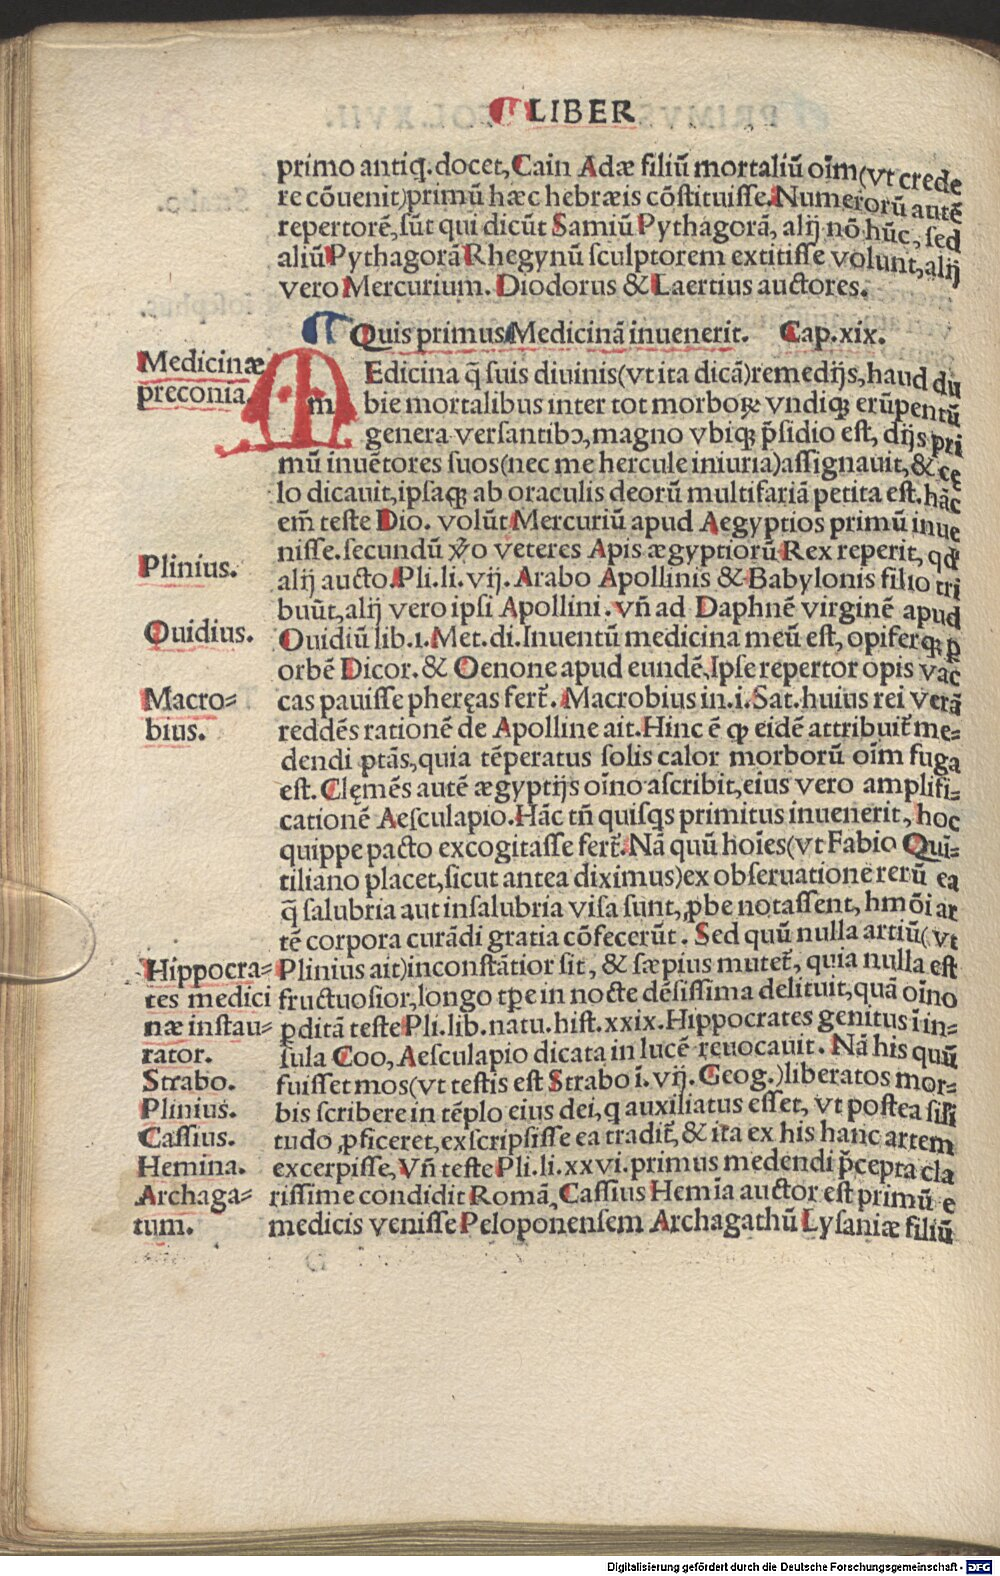 LIBER
primo antiq. docet, Cain Adæ filiũ mortaliũ oĩm (vt crede
re cõuenit) primũ hæc hebræis cõstituisse. Numerorũ autẽ
repertorẽ, sũt qui dicũt Samiũ Pythagorã, alij nõ hũc, sed
aliũ Pythagorã Rhegynũ sculptorem extitisse volunt, alij
vero Mercurium. Diodorus & Laertius auctores.
Quis primus Medicinã inuenerit. Cap. xix.
Medicinæ
preconia.
MEdicina q̃ suis diuinis (vt ita dicã) remedijs, haud du
bie mortalibus inter tot morboꝝ vndiqꝫ erũpentũ
genera versantibꝰ, magno vbiqꝫ p̃sidio est, dijs pri
mũ inuẽtores suos (nec me hercule iniuria) assignauit, & cę
lo dicauit, ipsaqꝫ ab oraculis deorũ multifariã petita est. hãc
em̃ teste Dio. volũt Mercuriũ apud Aegyptios primũ inue
nisse. secundũ ꝟo veteres Apis ægyptiorũ Rex reperit, qđ
Plinius.
alij aucto. Pli. li. vij. Arabo Apollinis & Babylonis filio tri
buũt, alij vero ipsi Apollini. vñ ad Daphnẽ virginẽ apud
Ouidius.
Ouidiũ lib. 1. Met. di. Inuentũ medicina meũ est, opiferqꝫ ꝑ
orbẽ Dicor. & Oenone apud eundẽ, Ipse repertor opis vac
Macro-
cas pauisse pheręas fert̃. Macrobius in. i. Sat. huius rei verã
bius.
reddẽs rationẽ de Apolline ait. Hinc ẽ ꝙ eidẽ attribuit̃ me-
dendi ptãs, quia tẽperatus solis calor morborũ oĩm fuga
est. Clęmẽs autẽ ægyptijs oĩno ascribit, eius vero amplifi-
cationẽ Aesculapio. Hãc tñ quisqs primitus inuenerit, hoc
quippe pacto excogitasse fert̃. Nã quũ hoĩes (vt Fabio Quĩ-
tiliano placet, sicut antea diximus) ex obseruatione rerũ ea
q̃ salubria aut insalubria visa sunt, ꝓbe notassent, hmõi ar
tẽ corpora curãdi gratia cõfecerũt. Sed quũ nulla artiũ (vt
Hippocra-
tes medici
næ instau-
rator.
Plinius ait) inconstãtior sit, & sæpius mutet̃, quia nulla est
fructuosior, longo tꝑe in nocte dẽsissima delituit, quã oĩno
ꝑditã teste Pli. lib. natu. hist. xxix. Hippocrates genitus ĩ in-
sula Coo, Aesculapio dicata in lucẽ reuocauit. Nã his quũ
Strabo.
fuisset mos (vt testis est Strabo ĩ. vij. Geog.) liberatos mor-
Plinius.
bis scribere in tẽplo eius dei, q auxiliatus esset, vt postea sili
Cassius.
tudo ꝓficeret, exscripsisse ea tradit̃, & ita ex his hanc artem
Hemina.
excerpisse, Vñ teste Pli. li. xxvi. primus medendi p̃cepta cla
Archaga-
rissime condidit Romã, Cassius Hemĩa auctor est primũ e
tum.
medicis venisse Peloponensem Archagathũ Lysaniæ filiũ
Digitalisierung gefördert durch die Deutsche Forschungsgemeinschaft - DFG